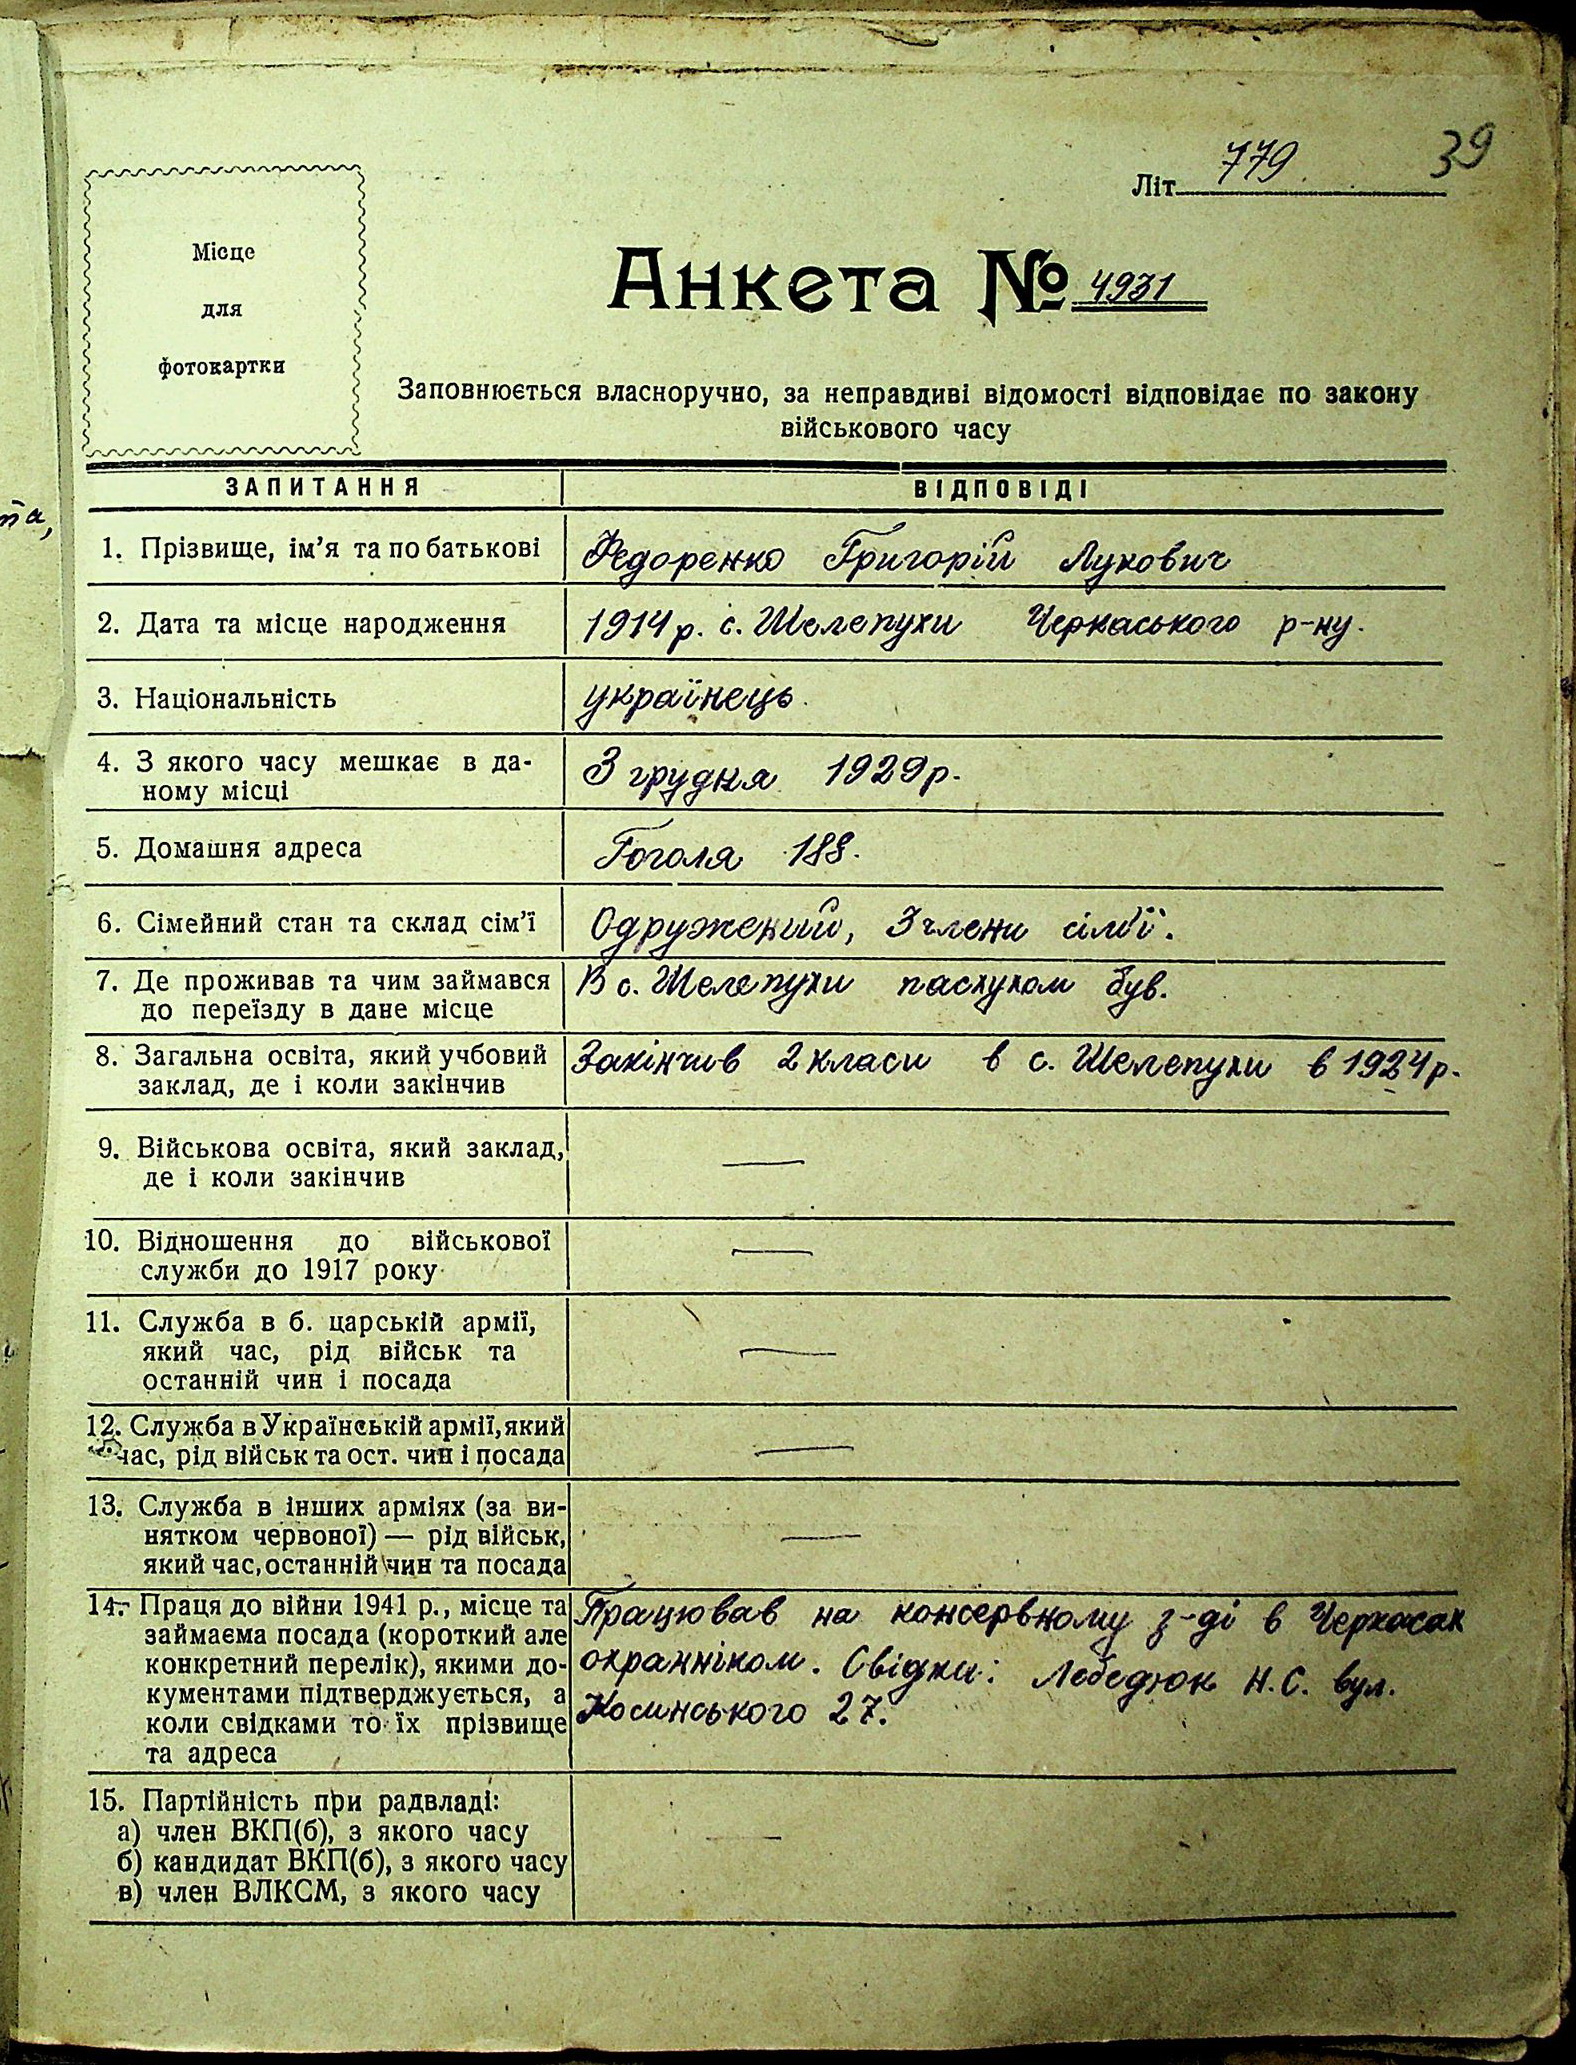 39
Літ 779
Місце
для
фотокартки
Анкета № 4931
Заповнюється власноручно, за неправдиві відомості відповідає по закону
військового часу
ЗАПИТАННЯ ВІДПОВІДІ
1. Прізвище, ім'я та по батькові Федоренко Григорій Лукович
2. Дата та місце народження 1914 р. с. Шелепухи Черкаського р-ну.
3. Національність українець
4. З якого часу мешкає в да-
ному місці З грудня 1929 р.
5. Домашня адреса Гоголя 188.
6. Сімейний стан та склад сім'ї Одружений, 3 члени сім'ї.
7. Де проживав та чим займався В с. Шелепухи пастухом був.
до переїзду в дане місце
8. Загальна освіта, який учбовий Закінчив 2 класи в с. Шелепухи в 1924 р.
заклад, де і коли закінчив
9. Військова освіта, який заклад, —
де і коли закінчив
10. Відношення до військової —
служби до 1917 року
11. Служба в б. царській армії,
який час, рід військ та —
останній чин і посада
12. Служба в Українській армії, який
час, рід військ та ост. чин і посада —
13. Служба в інших арміях (за ви-
нятком червоної) — рід військ, —
який час, останній чин та посада
14. Праця до війни 1941 р., місце та Працював на консервному з-ді в Черкасах
займаєма посада (короткий але
конкретний перелік), якими до- охранніком. Свідки: Лебедюк Н.С. вул.
кументами підтверджується, а
коли свідками то їх прізвище Косинського 27.
та адреса
15. Партійність при радвладі:
а) член ВКП(б), з якого часу —
б) кандидат ВКП(б), з якого часу
в) член ВЛКСМ, з якого часу